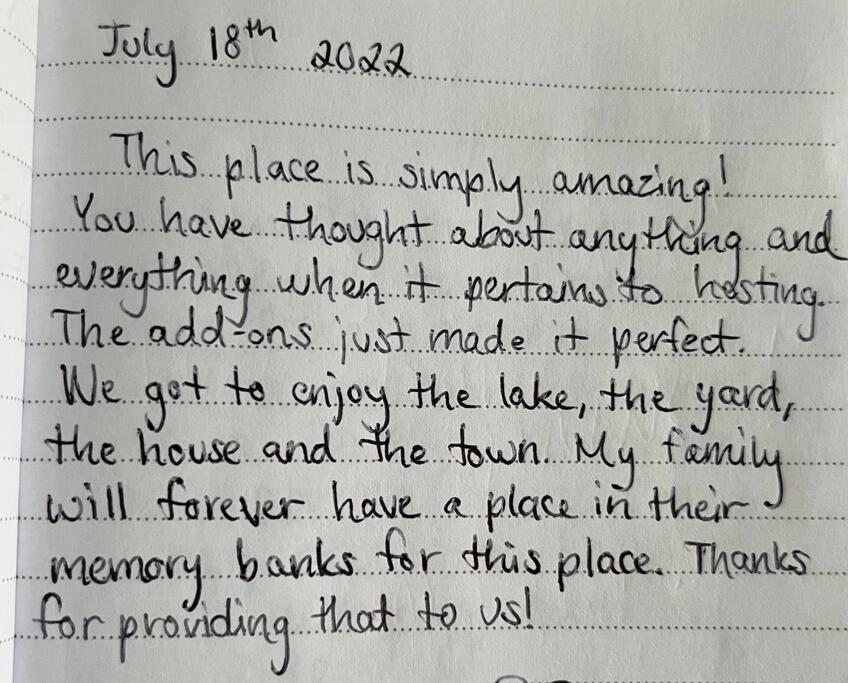 July 18th 2022
This place is simply amazing!
You have thought about anything and
everything when it pertains to hosting.
The add-ons just made it perfect.
We got to enjoy the lake, the yard,
the house and the town. My family
will forever have a place in their
memory banks for this place. Thanks
for providing that to us!